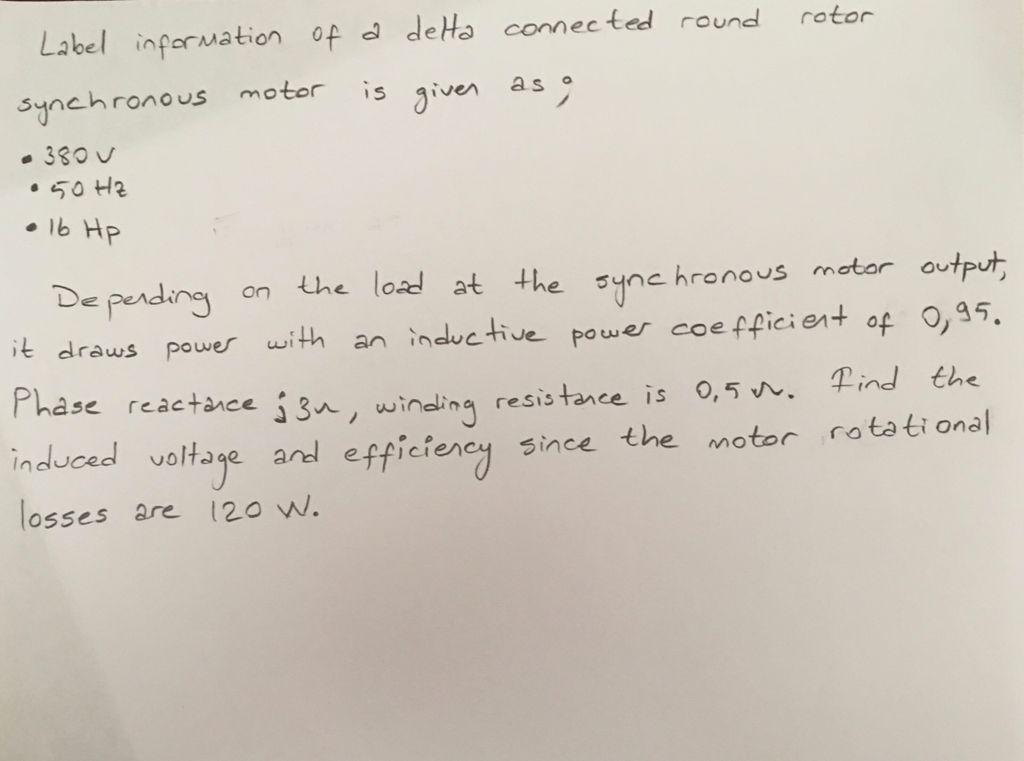 Label information of a delta connected round rotor
synchronous motor is given as;
• 380 V
• 50 Hz
• 16 Hp
Depending on the load at the synchronous motor output,
it draws power with an inductive power coefficient of 0,95.
Phase reactance j3Ω, winding resistance is 0,5 Ω. Find the
induced voltage and efficiency since the motor rotational
losses are 120 W.